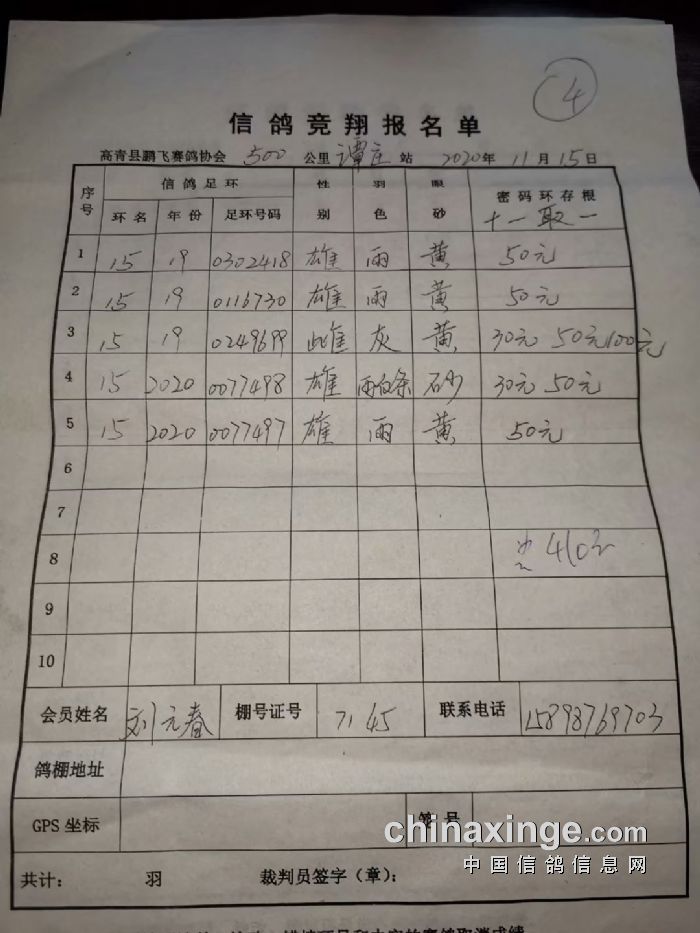 4
信鸽竞翔报名单
高青县鹏飞赛鸽协会 500 公里 谭庄 站 2020年 11月 15日
序号 信鸽足环 性别 羽色 眼砂 密码环存根
环名 年份 足环号码 十一取一
1 15 19 0302418 雄 雨 黄 50元
2 15 19 0116730 雄 雨 黄 50元
3 15 19 0249699 雌 灰 黄 30元 50元 100元
4 15 2020 0077498 雄 雨白条 砂 30元 50元
5 15 2020 0077497 雄 雨 黄 50元
6
7
8 410元
9
10
会员姓名 刘元春 棚号证号 7145 联系电话 15898769703
鸽棚地址
GPS 坐标 笼号
chinaxinge.com
中国信鸽信息网
共计： 羽 裁判员签字（章）：